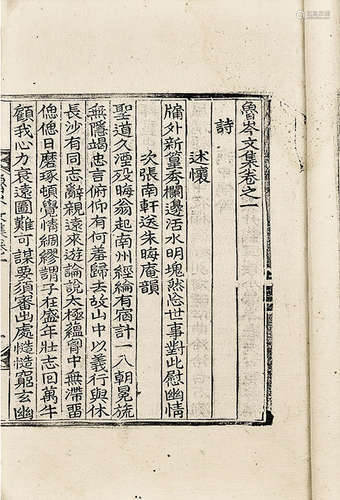 魯岑文集卷之一
詩
述懷
牖外新篁秀欄邊活水明塊然念世事對此慰幽情
次張南軒送朱晦庵韻
聖道久湮殁晦翁起南州經綸有宿計一入朝冕旒
無隱竭忠言俯仰有何羞歸去故山中以義行與休
長沙有同志辭親遠來遊論說太極蘊胷中無滯畱
偲偲日磨琢頓覺情綢繆謂子在盛年壯志回萬牛
顧我心力衰遠圖難可謀要須審出處慥慥窮玄幽